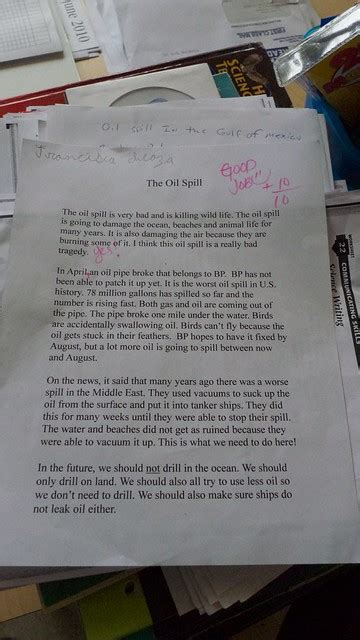 June 2010
FIRST CLASS MAIL
SCIENC
TE
Oil spill In the Gulf of mexico
GOOD
JOB!!
+10
10
The Oil Spill
The oil spill is very bad and is killing wild life. The oil spill
is going to damage the ocean, beaches and animal life for
many years. It is also damaging the air because they are
burning some of it. I think this oil spill is a really bad
tragedy. yes!
In April, an oil pipe broke that belongs to BP. BP has not
been able to patch it up yet. It is the worst oil spill in U.S.
history. 78 million gallons has spilled so far and the
number is rising fast. Both gas and oil are coming out of
the pipe. The pipe broke one mile under the water. Birds
are accidentally swallowing oil. Birds can't fly because the
oil gets stuck in their feathers. BP hopes to have it fixed by
August, but a lot more oil is going to spill between now
and August.
On the news, it said that many years ago there was a worse
spill in the Middle East. They used vacuums to suck up the
oil from the surface and put it into tanker ships. They did
this for many weeks until they were able to stop their spill.
The water and beaches did not get as ruined because they
were able to vacuum it up. This is what we need to do here!
In the future, we should not drill in the ocean. We should
only drill on land. We should also all try to use less oil so
we don't need to drill. We should also make sure ships do
not leak oil either.
22
COMMUNICATING SKILLS
Science Writing